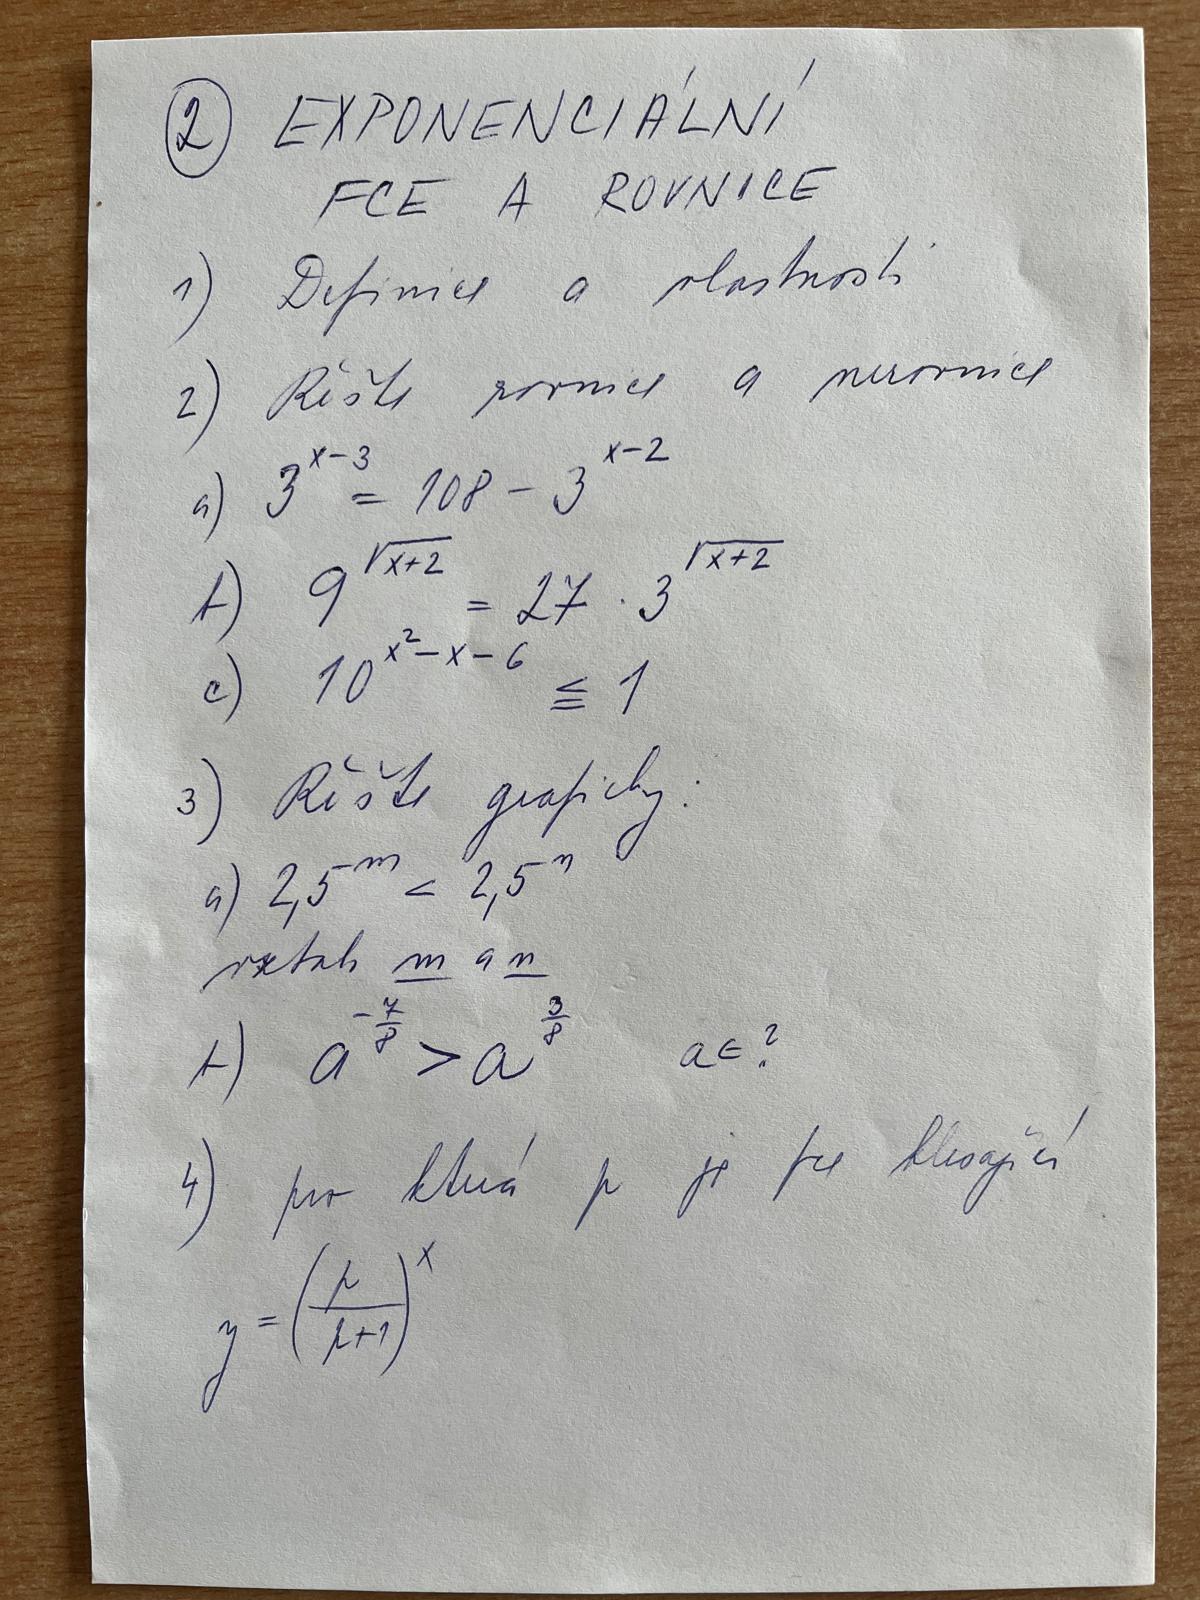 2 EXPONENCIÁLNÍ
FCE A ROVNICE
1) Definice a vlastnosti
2) Řešte rovnice a nerovnice
a) 3^{x-3} = 108 - 3^{x-2}
b) 9^{√(x+2)} = 27 · 3^{√(x+2)}
c) 10^{x²-x-6} ≦ 1
3) Řešte graficky:
a) 2,5^m < 2,5^n
vztah m a n
b) a^{-7/8} > a^{3/8} a ∈ ?
4) pro která p je fce klesající
y = (p/(p+1))^x